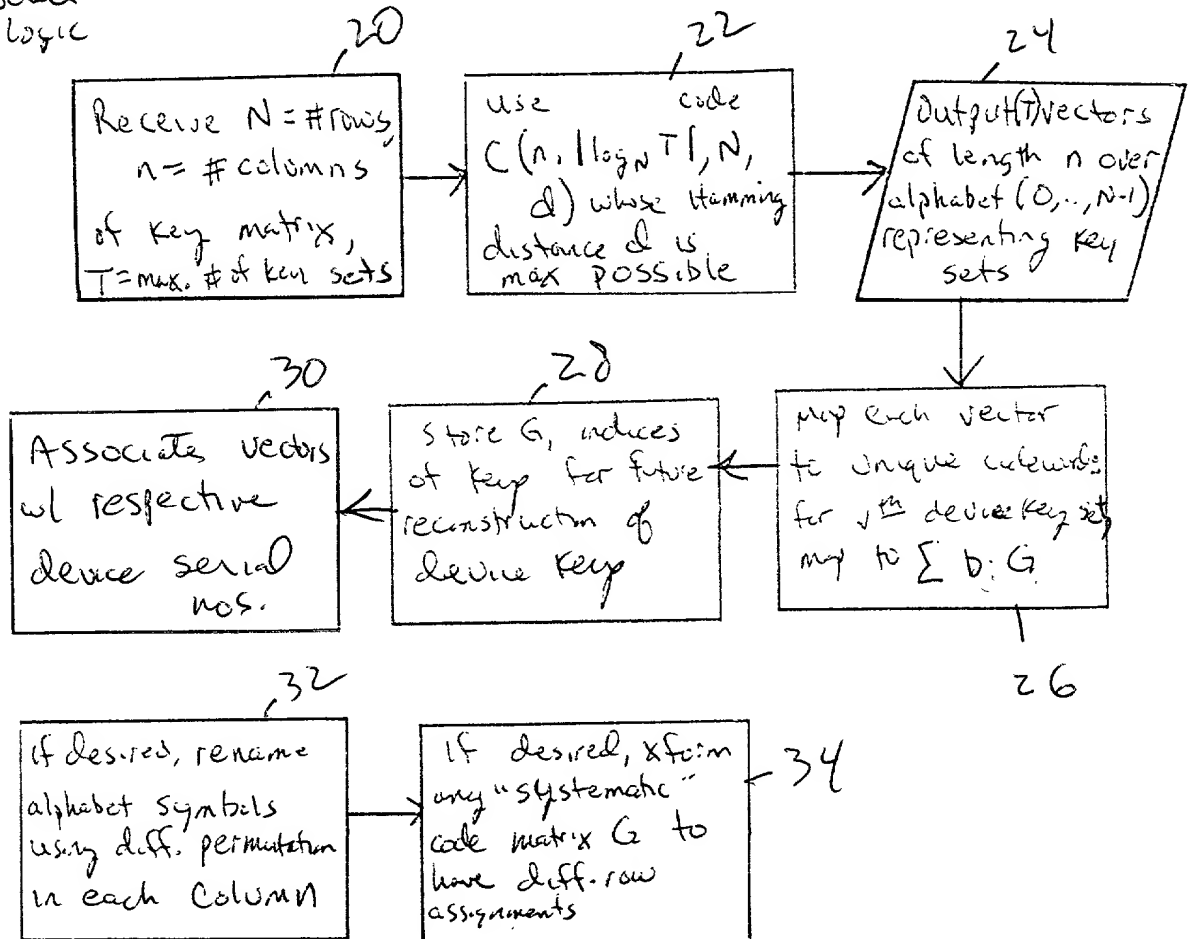 Logic
20
Receive N = #rows,
n = # columns
of key matrix,
T = max. # of key sets
22
use code
C(n, ⌈log_N T⌉, N,
d) whose Hamming
distance d is
max possible
24
Output (T) vectors
of length n over
alphabet (0,..,N-1)
representing key
sets
30
Associates vectors
w/ respective
device serial
nos.
28
store G, indices
of keys for future
reconstruction of
device keys
map each vector
to unique codewords
for vth device key set,
map to Σ b_i G
26
32
if desired, rename
alphabet symbols
using diff. permutation
in each column
If desired, xform
any "systematic"
code matrix G to
have diff. row
assignments
34